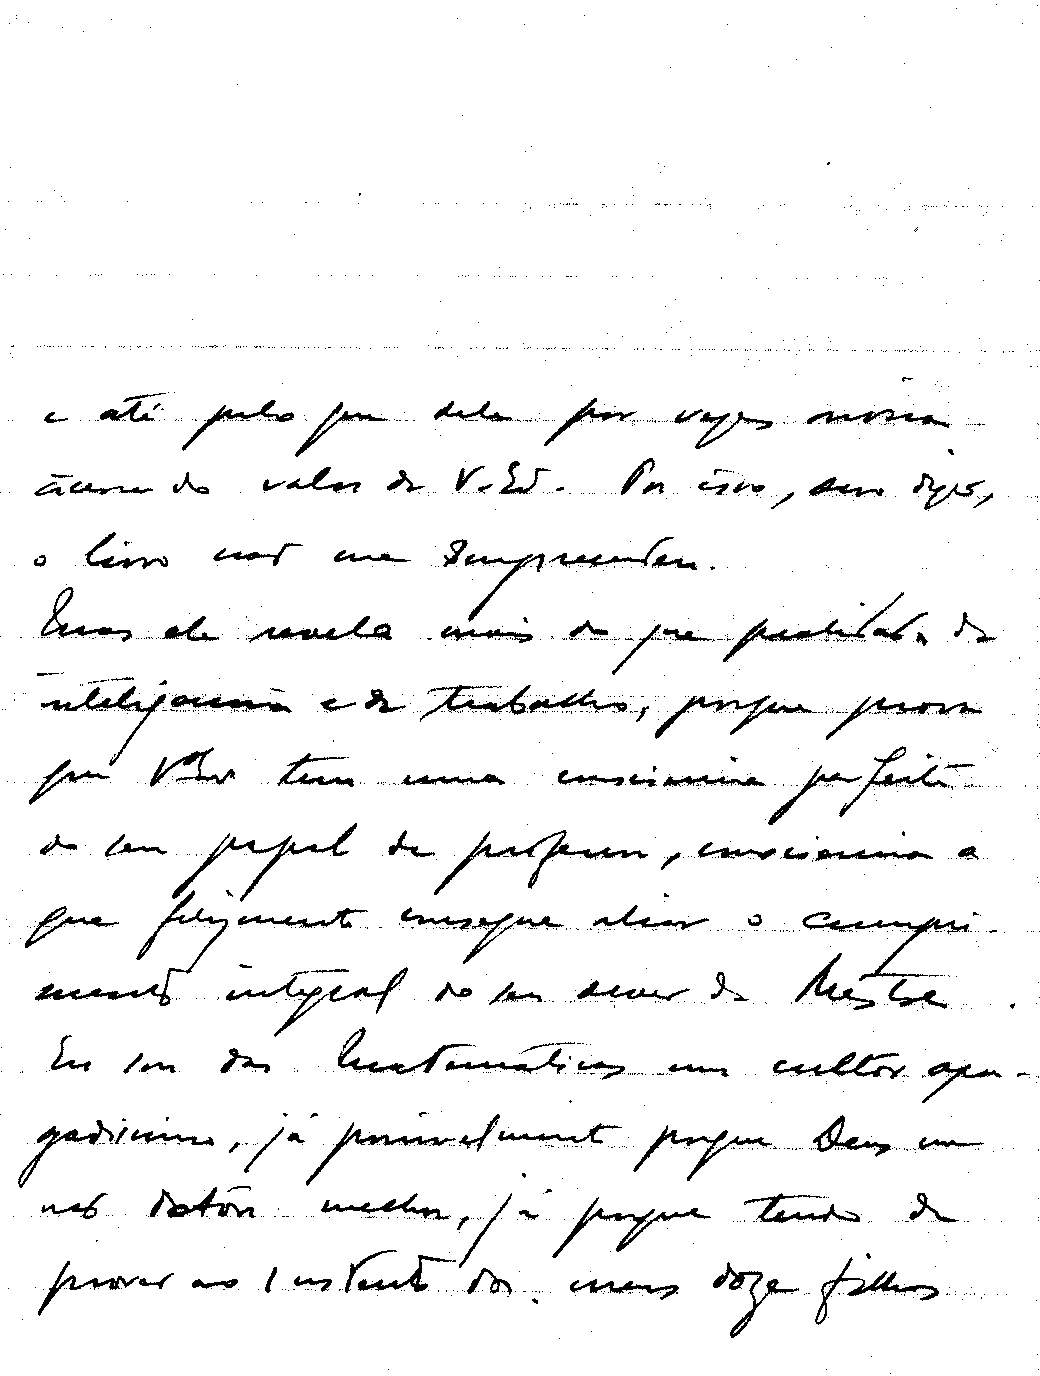 e até pelo que dele por vezes ouvia
àcerca do valor de V. Exª. Por isso, sem dizer,
o livro não me surpreendeu.
Mas ele revela mais do que qualidades de
inteligencia e de trabalho, porque prova
que V. Exª tem uma consciencia perfeita
do seu papel de professor, consciencia a
que felizmente consegue aliar o cumpri-
mento integral do seu dever de Mestre.
Eu sou das Matematicas um cultor apa-
gadissimo, já possivelmente porque Deus me
não dotou melhor, já porque tendo de
prover ao sustento dos meus doze filhos